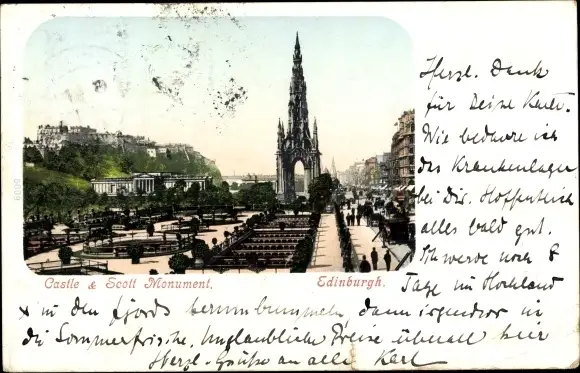 Herzl. Dank
für Deine Karte.
Wie bedaure ich
das Krankenlager
bei Dir. Hoffentlich
alles bald gut.
Ich werde noch 8
Tage im Hochland
Castle & Scott Monument.
Edinburgh.
x in den fjords herumbummeln, dann irgendwo in
die Sommerfrische. Unglaubliche Preise überall hier
Herzl. Grüße an alle Karl